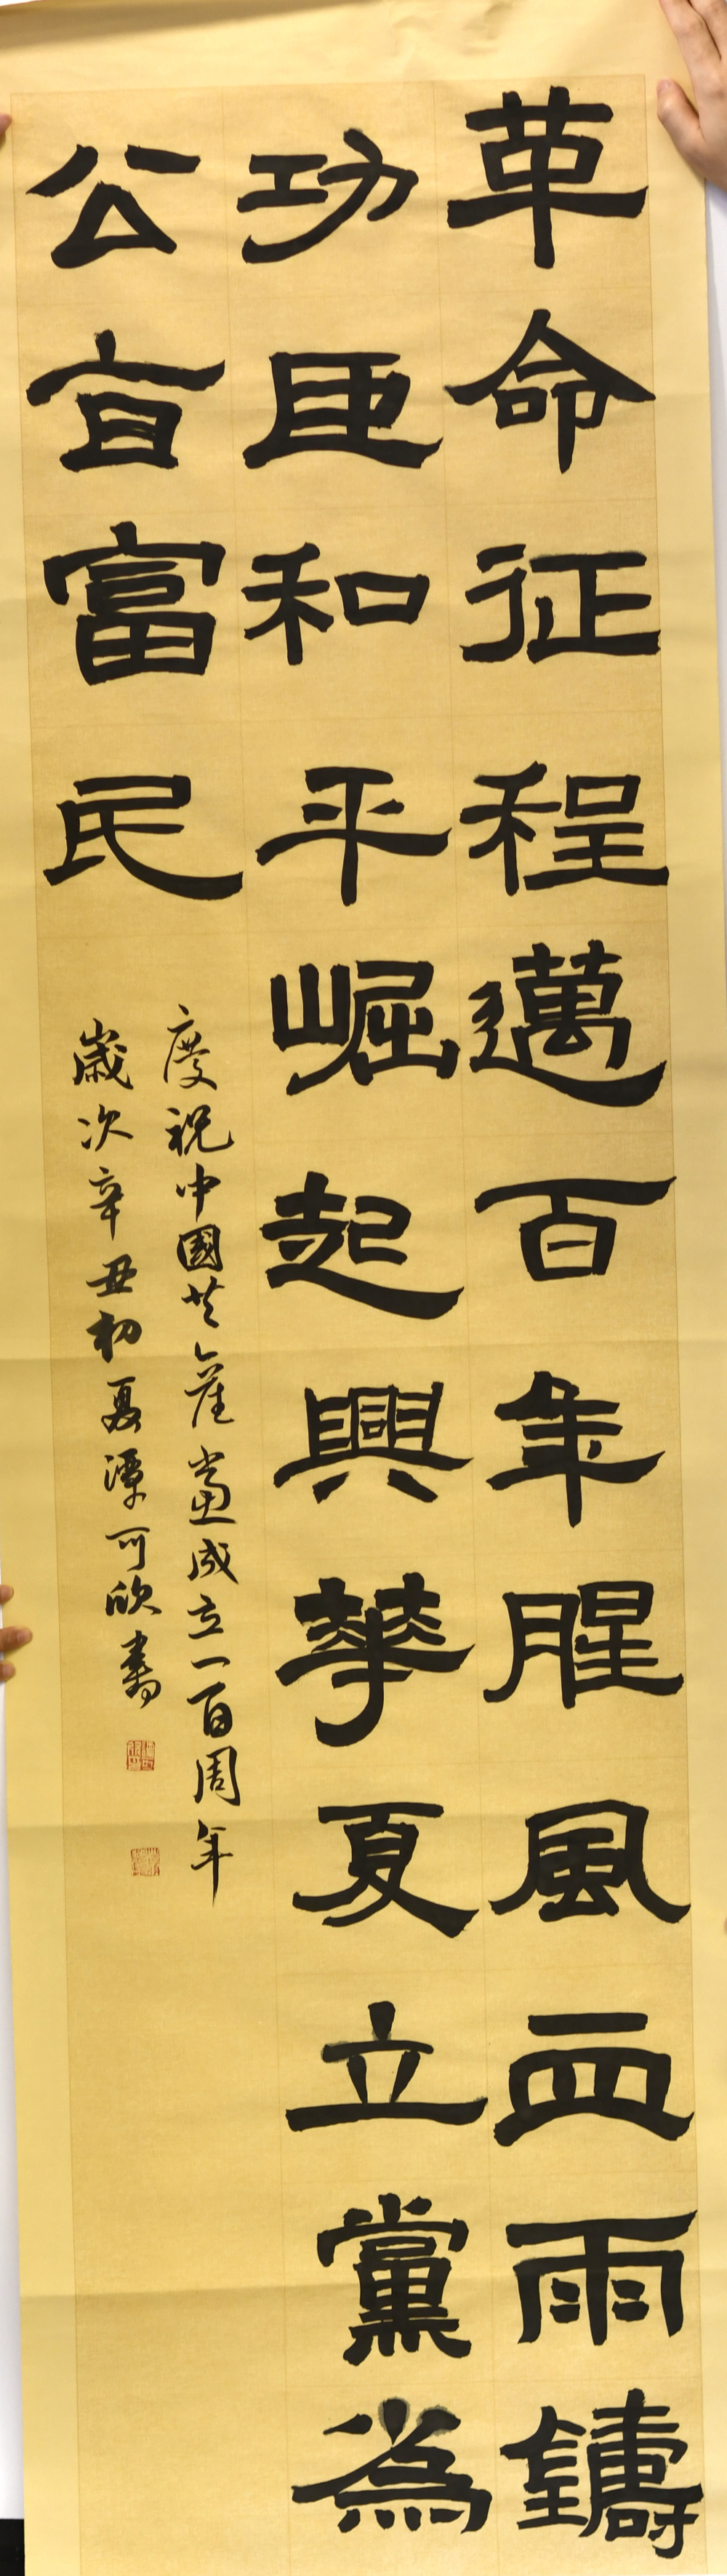 革命征程邁百年腥風血雨鑄
功臣和平崛起興華夏立黨為
公富民
慶祝中國共產黨成立一百周年
歲次辛丑初夏譚可欣書